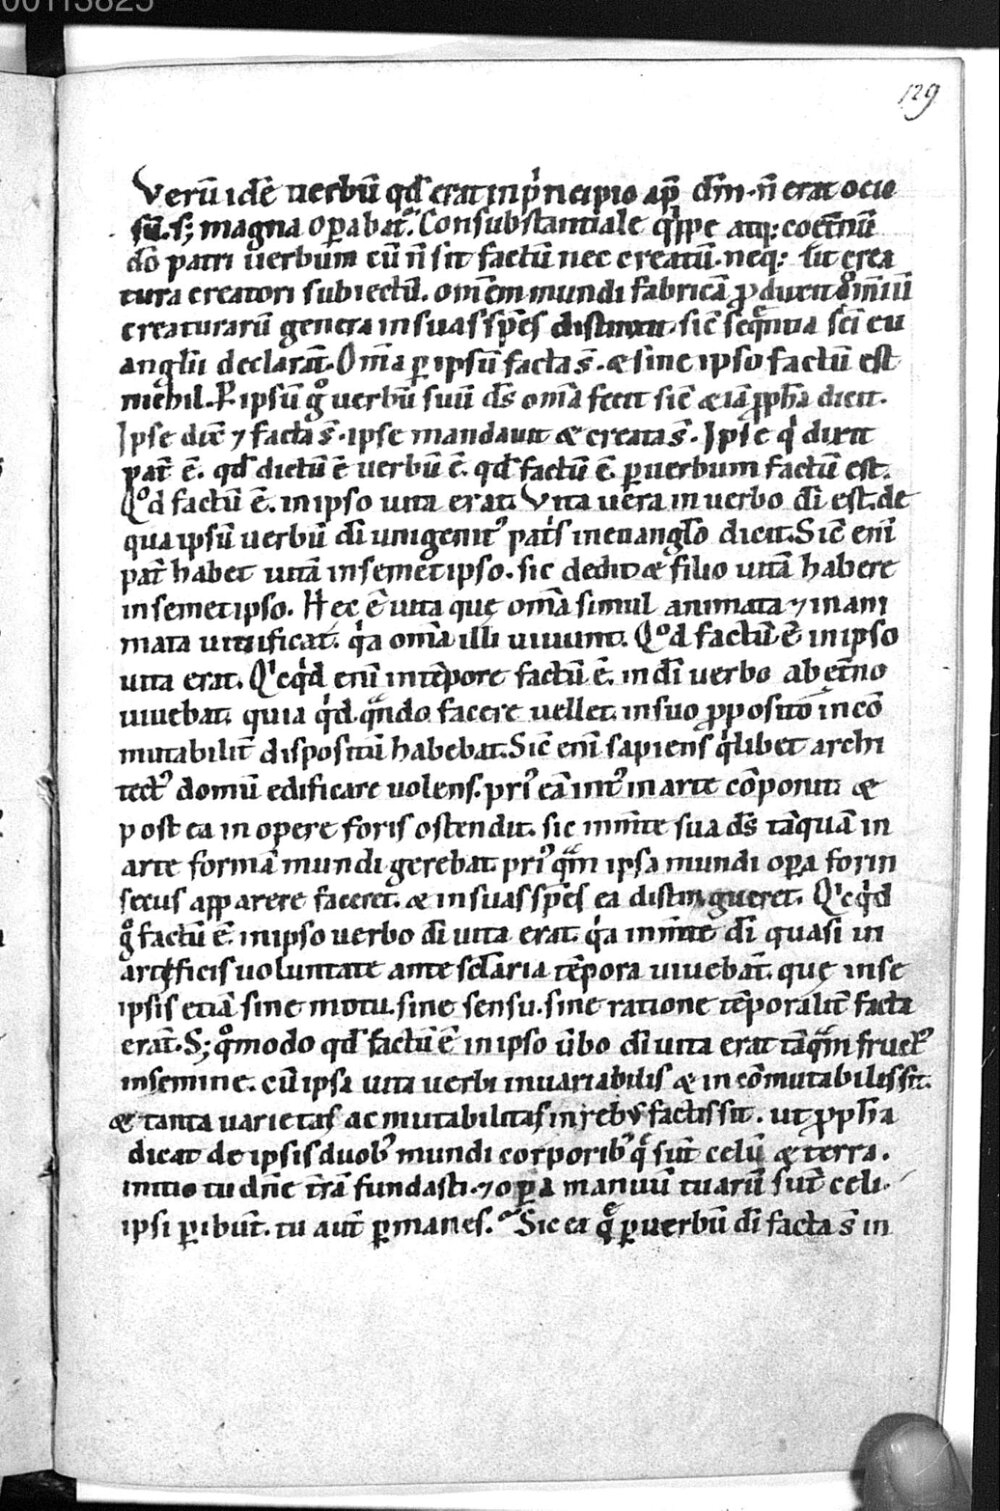 00113825
129
Verū idē uerbū qđ erat in pͥncipio ap̄ dm̄. n̄ erat ocio
sū. s; magna op̲abat᷑. Consubstantiale qͥppe atq; coet̄nū
dō patri uerbum cū n̄ sit factū nec creatū. neq; sit crea
tura creatori subiectū. om̄em mundi fabricā ꝓduxit om̄iū
creaturarū genera in suas sp̄es distinxit. sic̄ seqͣntia sc̄i eu
anglii declarāt. Om̄a ꝑ ipsū facta s̄. & sine ipso factū est
nichil. P̲ ipsū gͦ uerbū suū ds̄ om̄a fecit sic̄ & iā ꝓph̄a dicit.
Ipse dix̄ ⁊ facta s̄. ipse mandauit & creata s̄. Ipse qͥ dixit
pat̄ ē. qđ dictū ē uerbū ē. qđ factū ē. ꝑ uerbum factū est.
Qͦd factū ē. in ipso uita erat. Vita uera in uerbo dī est. de
qua ipsū uerbū dī unigenitꝰ pat̄s in euanglo dicit. Sic̄ enī
pat̄ habet uitā in semet ipso. sic dedit & filio uitā habere
in semet ipso. Hec ē uita quę om̄a simul animata ⁊ inani
mata uiuificat. qͥa om̄a illi uiuunt. Qͦd factū ē in ipso
uita erat. Qͥcqͥd enī in tēpore factū ē. in dī uerbo ab et̄no
uiuebat. quia qͥd. qͣndo facere uellet. in suo ꝓposito incō
mutabilit̄ dispositū habebat. Sic̄ enī sapiens qͥlibet archi
tectꝰ domū edificare uolens. priꝰ eā intꝰ in arte cōponit. &
post ea in opere foris ostendit. sic in m̄te sua ds̄ tāquā in
arte formā mundi gerebat. priꝰ qͣm ipsa mundi op̲a forin
secus apparere faceret. & in suas sp̄es ea distingueret. Qͥcqͥd
gͦ factū ē. in ipso uerbo dī uita erat. qͥa in m̄te dī quasi in
artificis uoluntate ante sclaria tēpora uiuebāt. quę in se
ipsis etiā sine motu. sine sensu. sine ratione tēporalit̄ facta
erāt. S; qͦmodo qđ factū ē in ipso ūbo dī uita erat tāqͣm fructꝰ
in semine. cū ipsa uita uerbi inuariabilis & incōmutabilis sit.
& tanta uarietas ac mutabilitas in rebꝰ factis sit. ut ꝓph̄a
dicat de ipsis duobꝰ mundi corporibꝰ qͥ sūt celū & terra.
initio tu dn̄e t̄rā fundasti. ⁊ op̲a manuū tuarū sūt celi.
ipsi ꝑibūt. tu aut̄ ꝑmanes. Sic ea qͥ ꝑ uerbū dī facta s̄ in